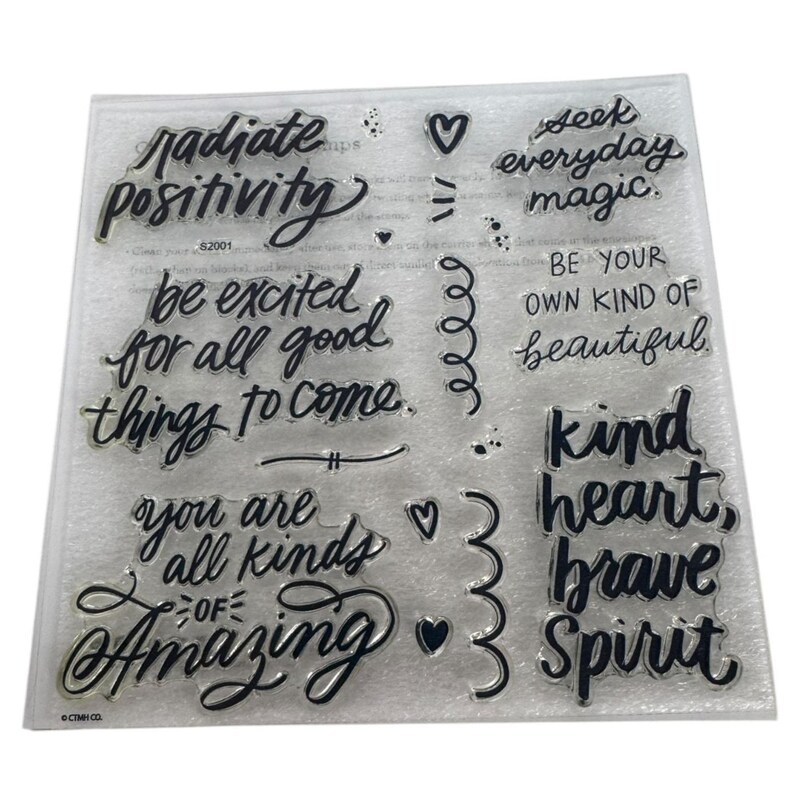 radiate
positivity
S2001
be excited
for all good
things to come.
you are
all kinds
OF
Amazing
© CTMH CO.
seek
everyday
magic.
BE YOUR
OWN KIND OF
beautiful.
kind
heart,
brave
Spirit